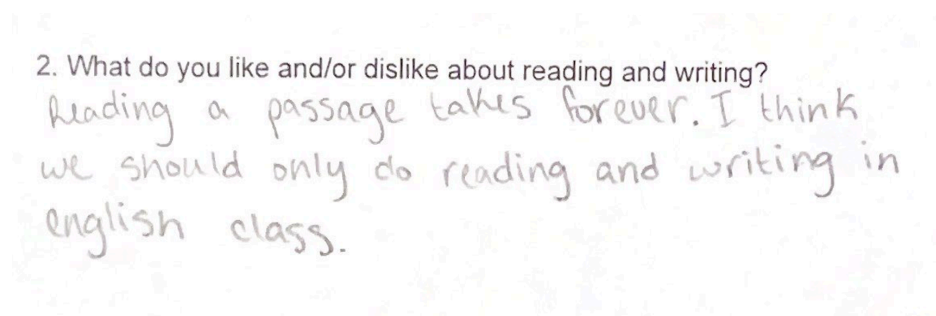 2. What do you like and/or dislike about reading and writing?
Reading a passage takes forever. I think
we should only do reading and writing in
english class.